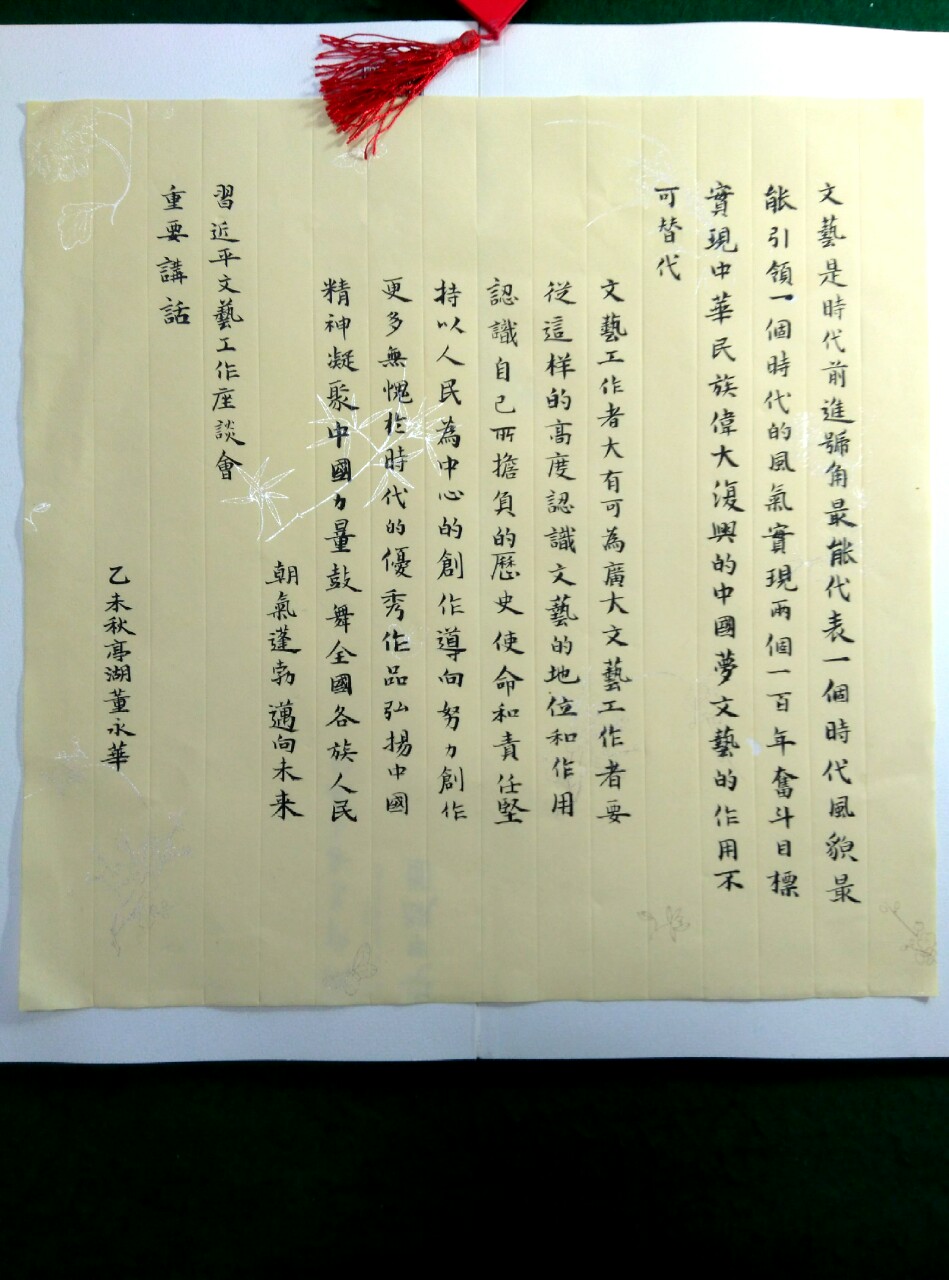 文藝是時代前進號角最能代表一個時代風貌最
能引領一個時代的風氣實現兩個一百年奮斗目標
實現中華民族偉大復興的中國夢文藝的作用不
可替代
文藝工作者大有可為廣大文藝工作者要
從這样的高度認識文藝的地位和作用
認識自己所擔負的歷史使命和責任堅
持以人民為中心的創作導向努力創作
更多無愧於時代的優秀作品弘揚中國
精神凝聚中國力量鼓舞全國各族人民
朝氣蓬勃邁向未来
習近平文藝工作座談會
重要講話
乙未秋亭湖董永華